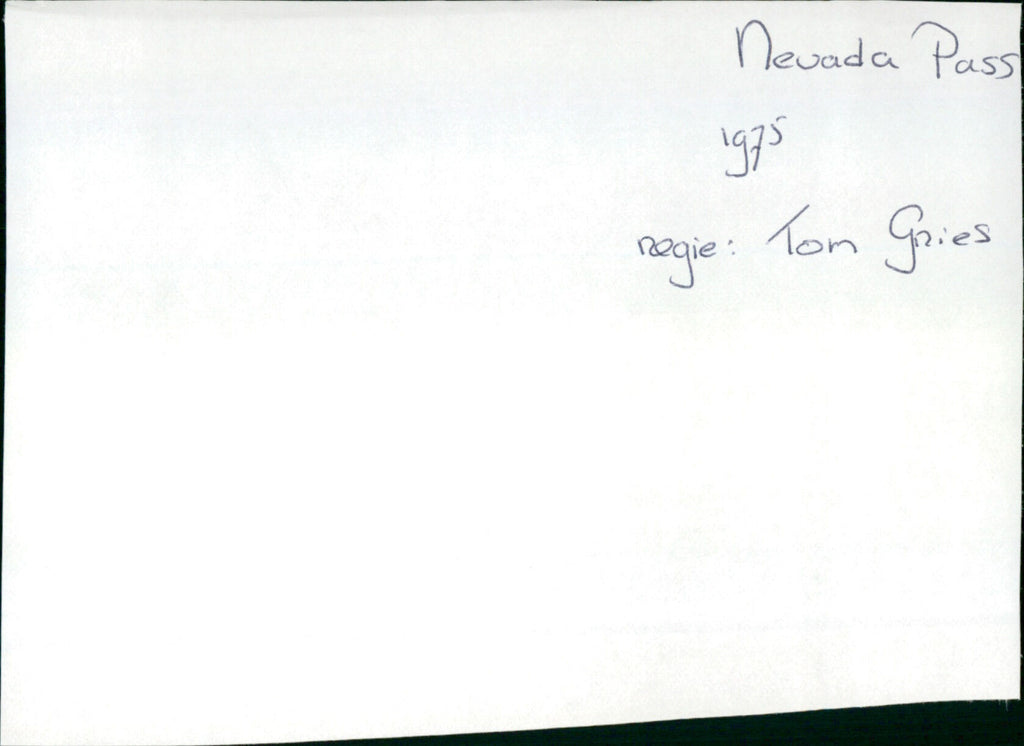 Nevada Pass
1975
regie: Tom Gries